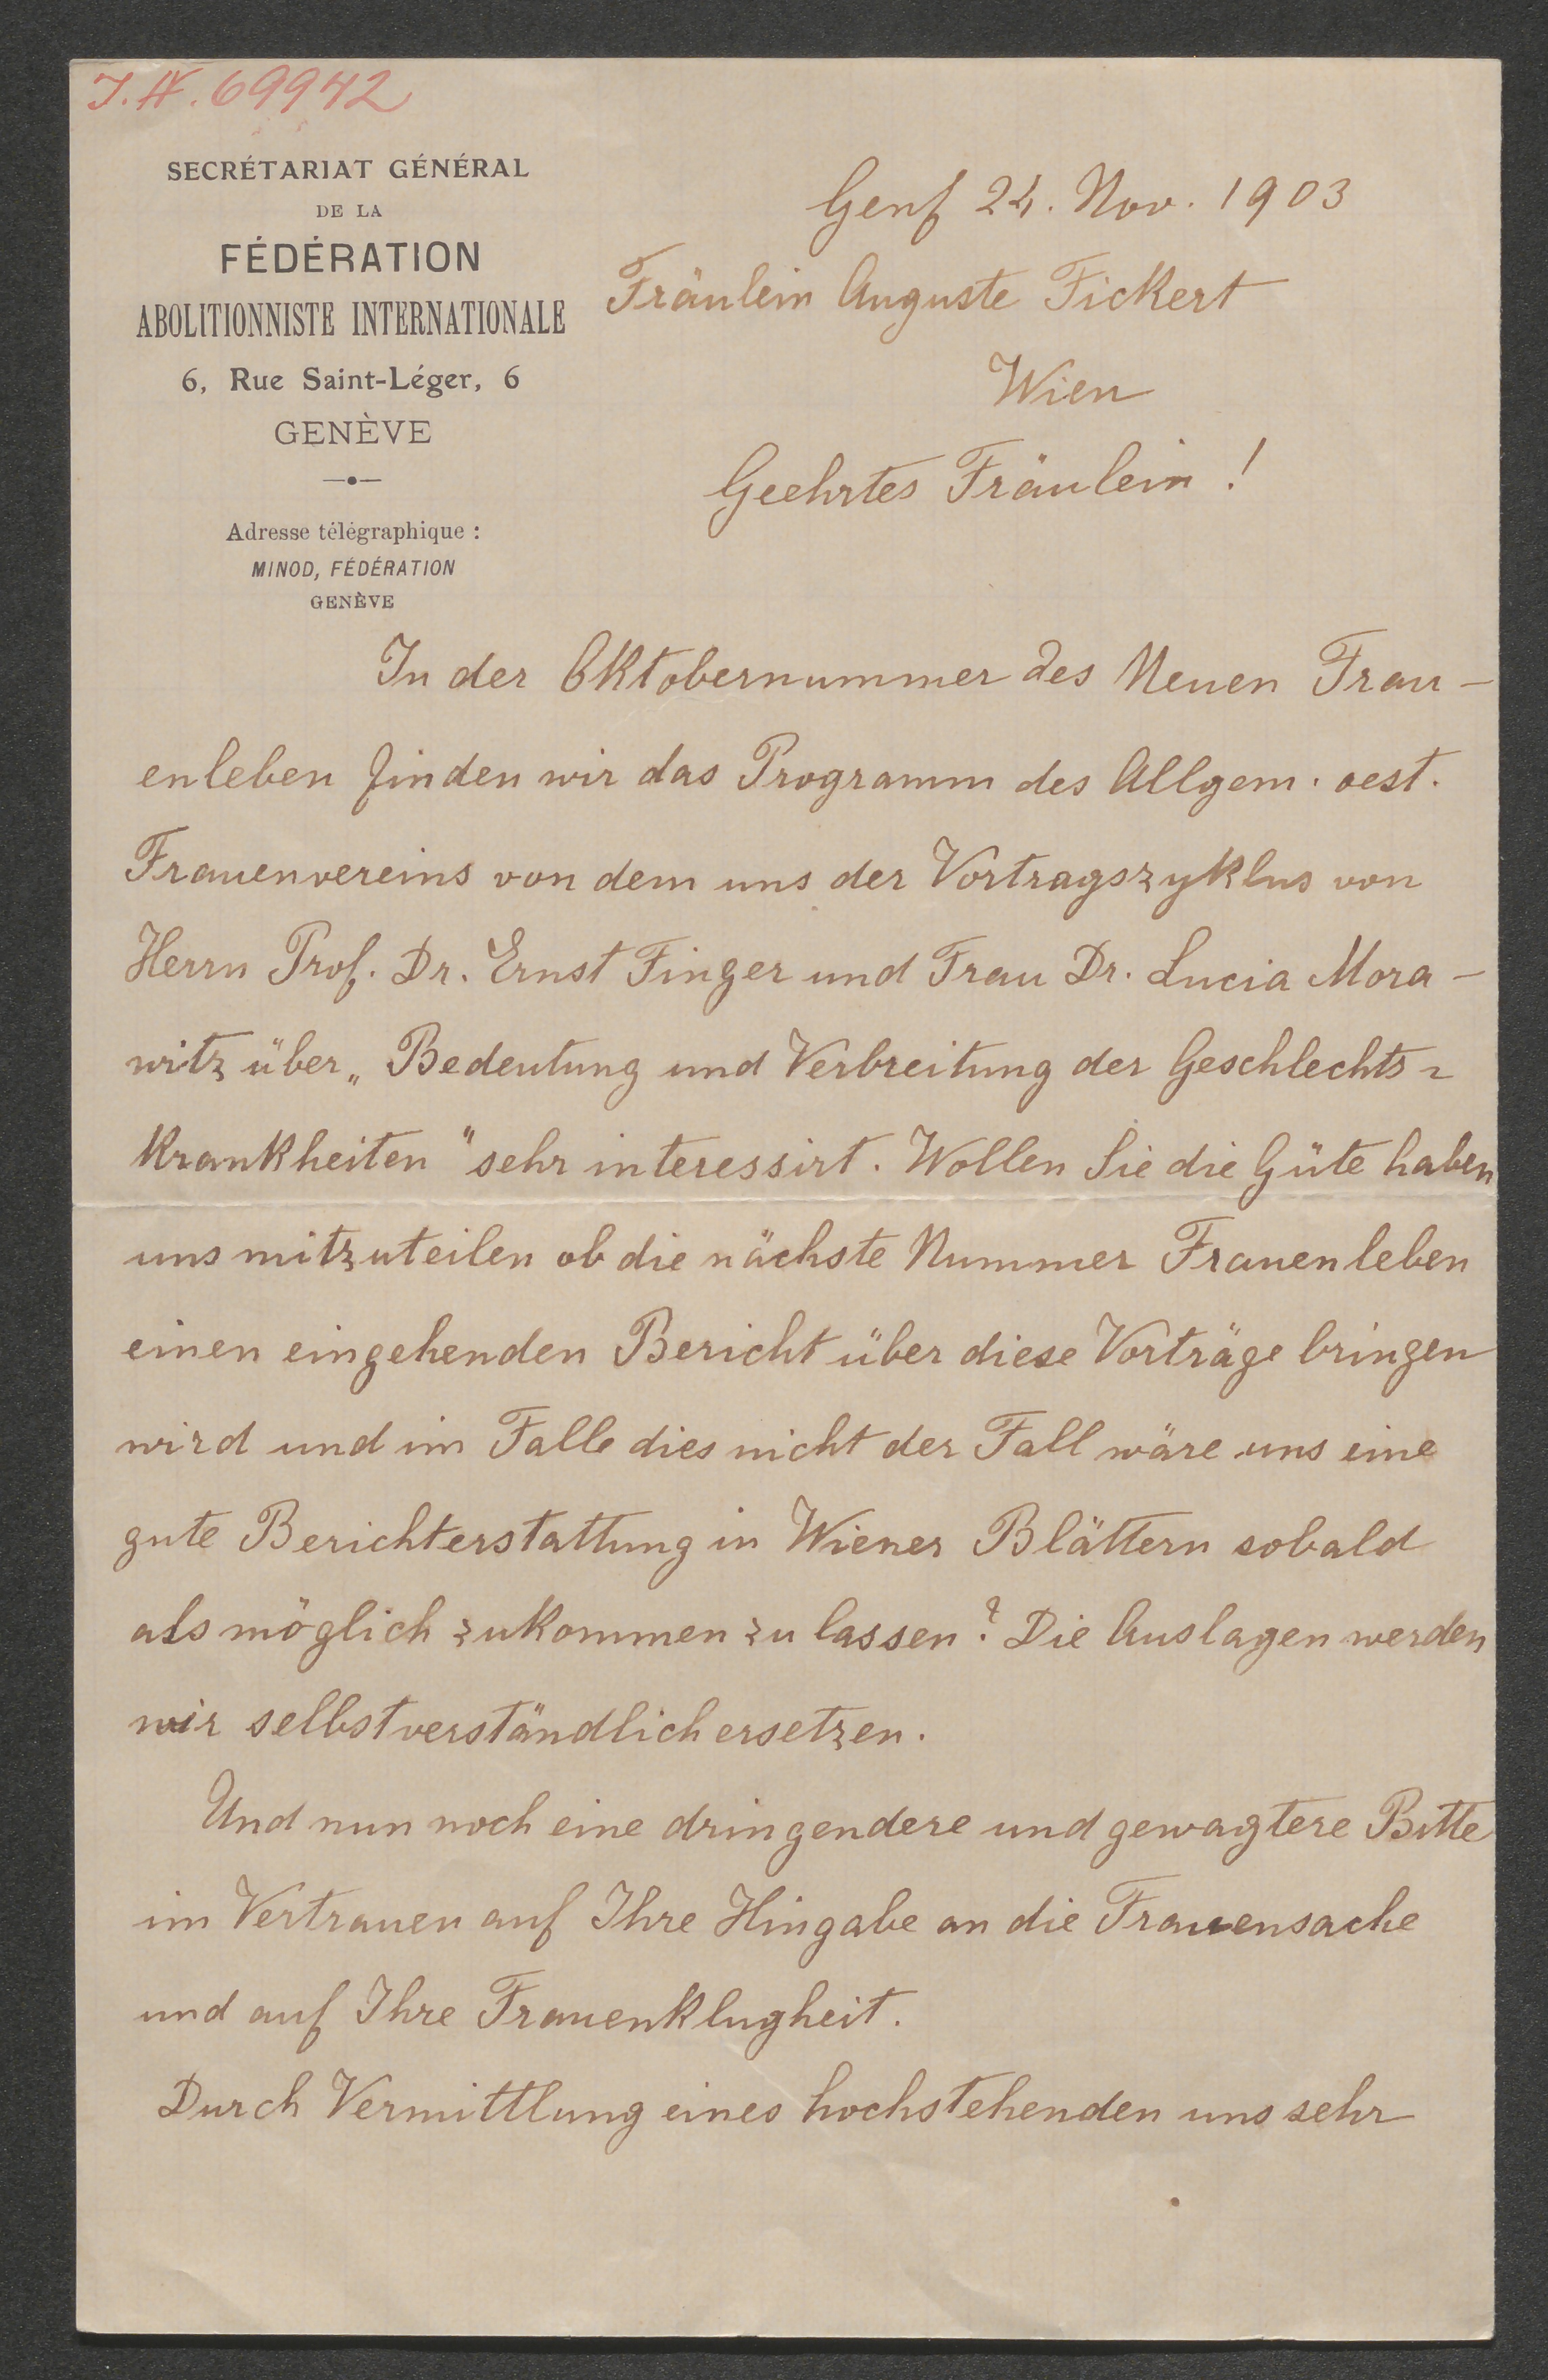 J.N. 69942
SECRÉTARIAT GÉNÉRAL
DE LA
FÉDÉRATION
ABOLITIONNISTE INTERNATIONALE
6, Rue Saint-Léger, 6
GENÈVE
Adresse télégraphique :
MINOD, FÉDÉRATION
GENÈVE
Genf 24. Nov. 1903
Fräulein Auguste Fickert
Wien
Geehrtes Fräulein !
In der Oktobernummer des Neuen Frau-
enleben finden wir das Programm des Allgem. oest.
Frauenvereins von dem uns der Vortragszyklus von
Herrn Prof. Dr. Ernst Finger und Frau Dr. Lucia Mora-
witz über „Bedeutung und Verbreitung der Geschlechts-
Krankheiten" sehr interessirt. Wollen Sie die Güte haben
uns mitzuteilen ob die nächste Nummer Frauenleben
einen eingehenden Bericht über diese Vorträge bringen
wird und im Falle dies nicht der Fall wäre uns eine
gute Berichterstattung in Wiener Blättern sobald
als möglich zukommen zu lassen? Die Auslagen werden
wir selbstverständlich ersetzen.
Und nun noch eine dringendere und gewagtere Bitte
im Vertrauen auf Ihre Hingabe an die Frauensache
und auf Ihre Frauenklugheit.
Durch Vermittlung eines hochstehenden uns sehr